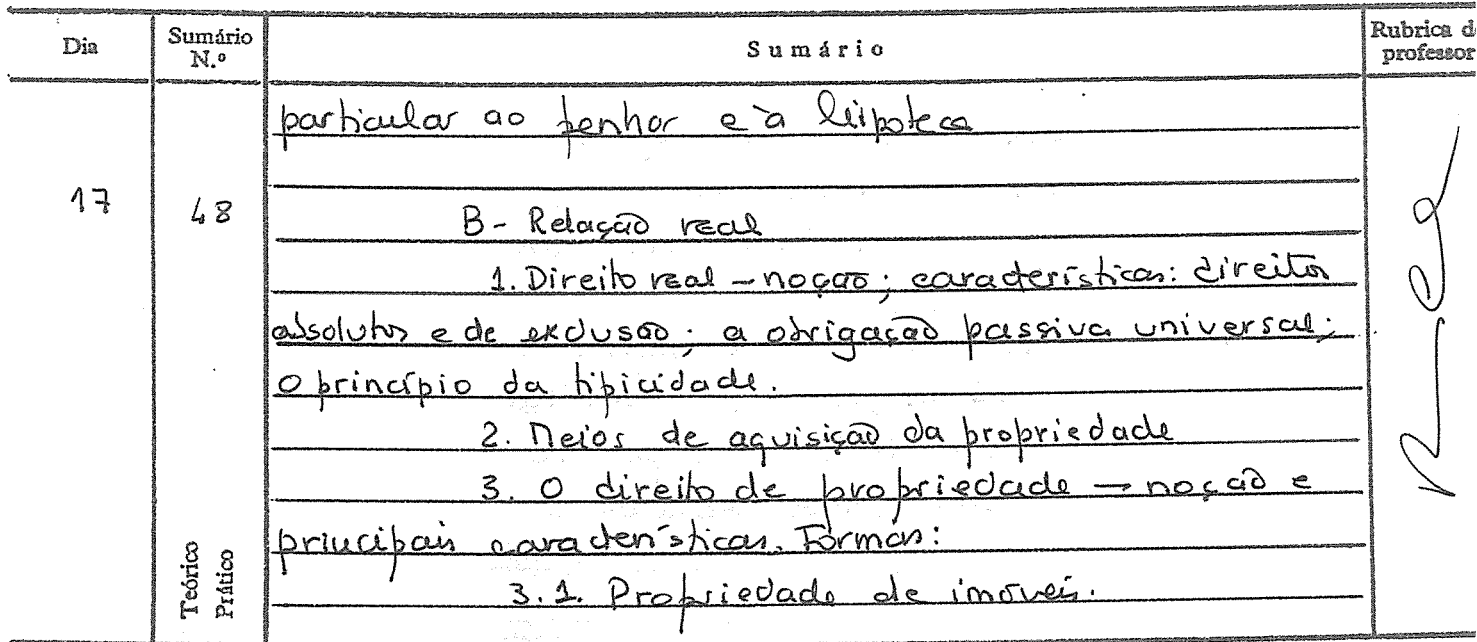 Dia
Sumário N.º
Sumário
Rubrica d
professor
particular ao penhor e à hipoteca
17
48
B - Relação real
1. Direito real - noção; características: direitos
absolutos e de exclusão; a obrigação passiva universal;
o princípio da tipicidade.
2. Meios de aquisição da propriedade
3. O direito de propriedade - noção e
principais características. Formas:
3.1. Propriedade de imóveis.
Teórico
Prático